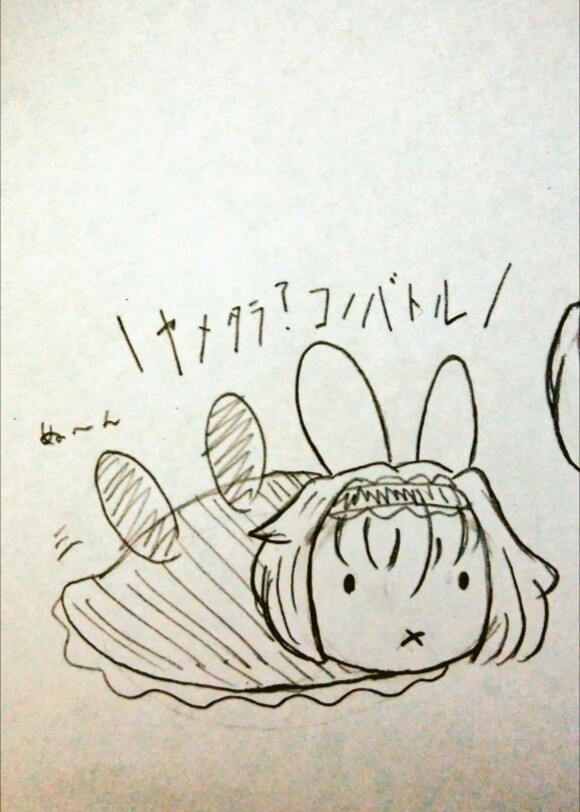 \ヤメタラ?コノバトル/
ぬ〜ん